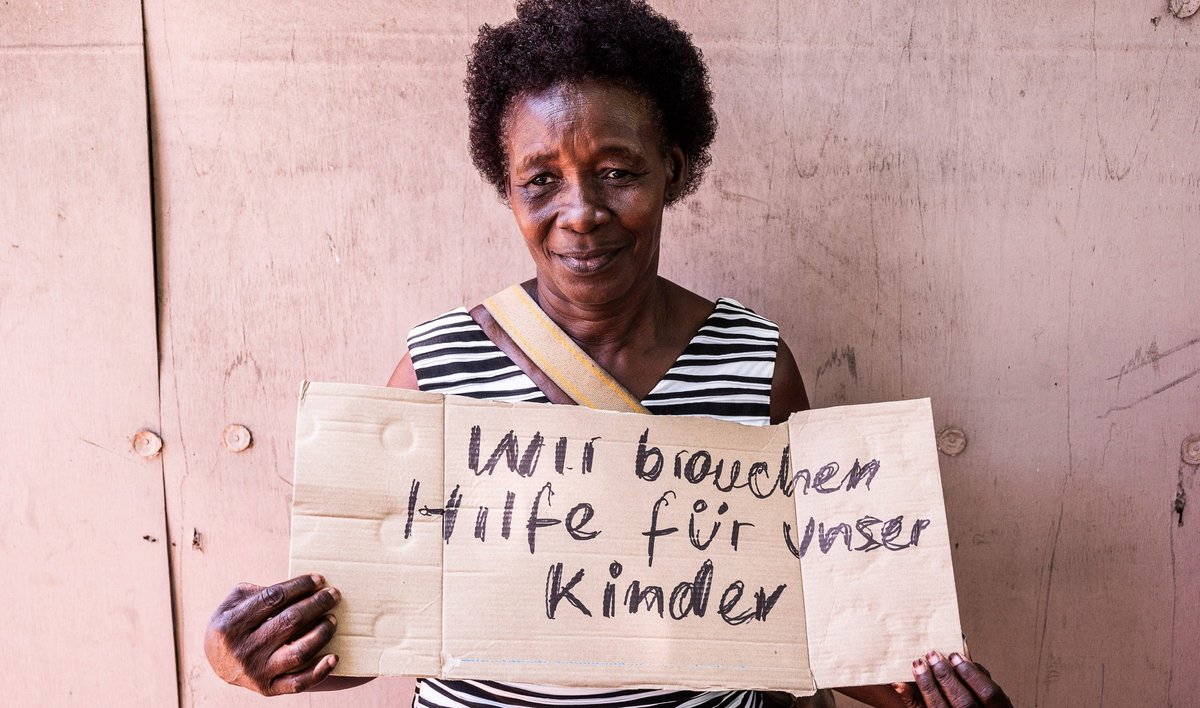 Wir brauchen
Hilfe für unser
Kinder